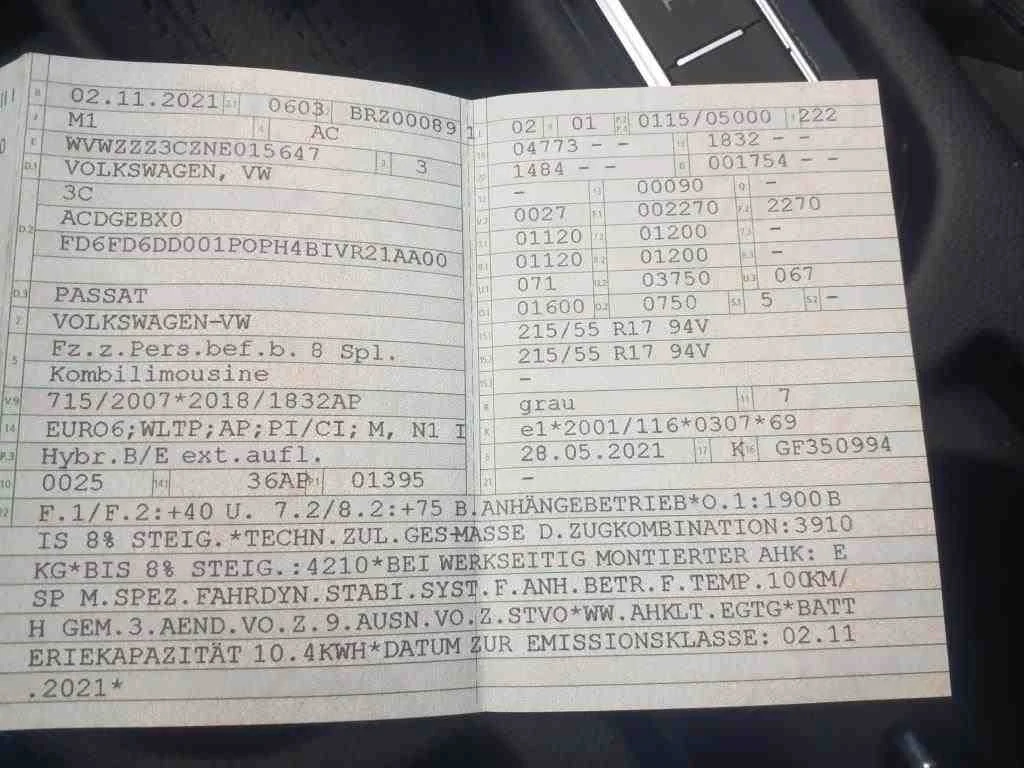 B 02.11.2021 2.1 0603 BRZ00089 1
J M1 4 AC
E WVWZZZ3CZNE015647 3 3
D.1 VOLKSWAGEN, VW
3C
D.2 ACDGEBX0
FD6FD6DD001POPH4BIVR21AA00
D.3 PASSAT
2 VOLKSWAGEN-VW
5 Fz.z.Pers.bef.b. 8 Spl.
Kombilimousine
V.9 715/2007*2018/1832AP
14 EURO6;WLTP;AP;PI/CI; M, N1 I
P.3 Hybr.B/E ext.aufl.
10 0025 14.1 36AP P.1 01395
L 02 9 01 P.2 P.4 0115/05000 T 222
18 04773 - - 19 1832 - -
20 1484 - - G 001754 - -
12 - 13 00090 Q -
V.7 0027 F.1 002270 F.2 2270
7.1 01120 7.2 01200 7.3 -
8.1 01120 8.2 01200 8.3 -
U.1 071 U.2 03750 U.3 067
O.1 01600 O.2 0750 S.1 5 S.2 -
15.1 215/55 R17 94V
15.2 215/55 R17 94V
15.3 -
R grau 11 7
K e1*2001/116*0307*69
6 28.05.2021 17 K 16 GF350994
21 -
22 F.1/F.2:+40 U. 7.2/8.2:+75 B.ANHÄNGEBETRIEB*O.1:1900 B
IS 8% STEIG.*TECHN.ZUL.GES-MASSE D.ZUGKOMBINATION:3910
KG*BIS 8% STEIG.:4210*BEI WERKSEITIG MONTIERTER AHK: E
SP M.SPEZ.FAHRDYN.STABI.SYST.F.ANH.BETR.F.TEMP.100KM/
H GEM.3.AEND.VO.Z.9.AUSN.VO.Z.STVO*WW.AHKLT.EGTG*BATT
ERIEKAPAZITÄT 10.4KWH*DATUM ZUR EMISSIONSKLASSE: 02.11
.2021*